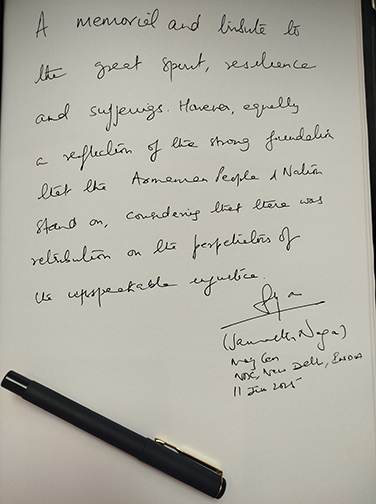 A memorial and tribute to
the great spirit, resilience
and sufferings. However, equally
a reflection of the strong foundation
that the Armenian People & Nation
stand on, considering that there was
retribution on the perpetrators of
the unspeakable injustice.
Maj Gen
NDC, New Delhi, INDIA
11 Jun 2025